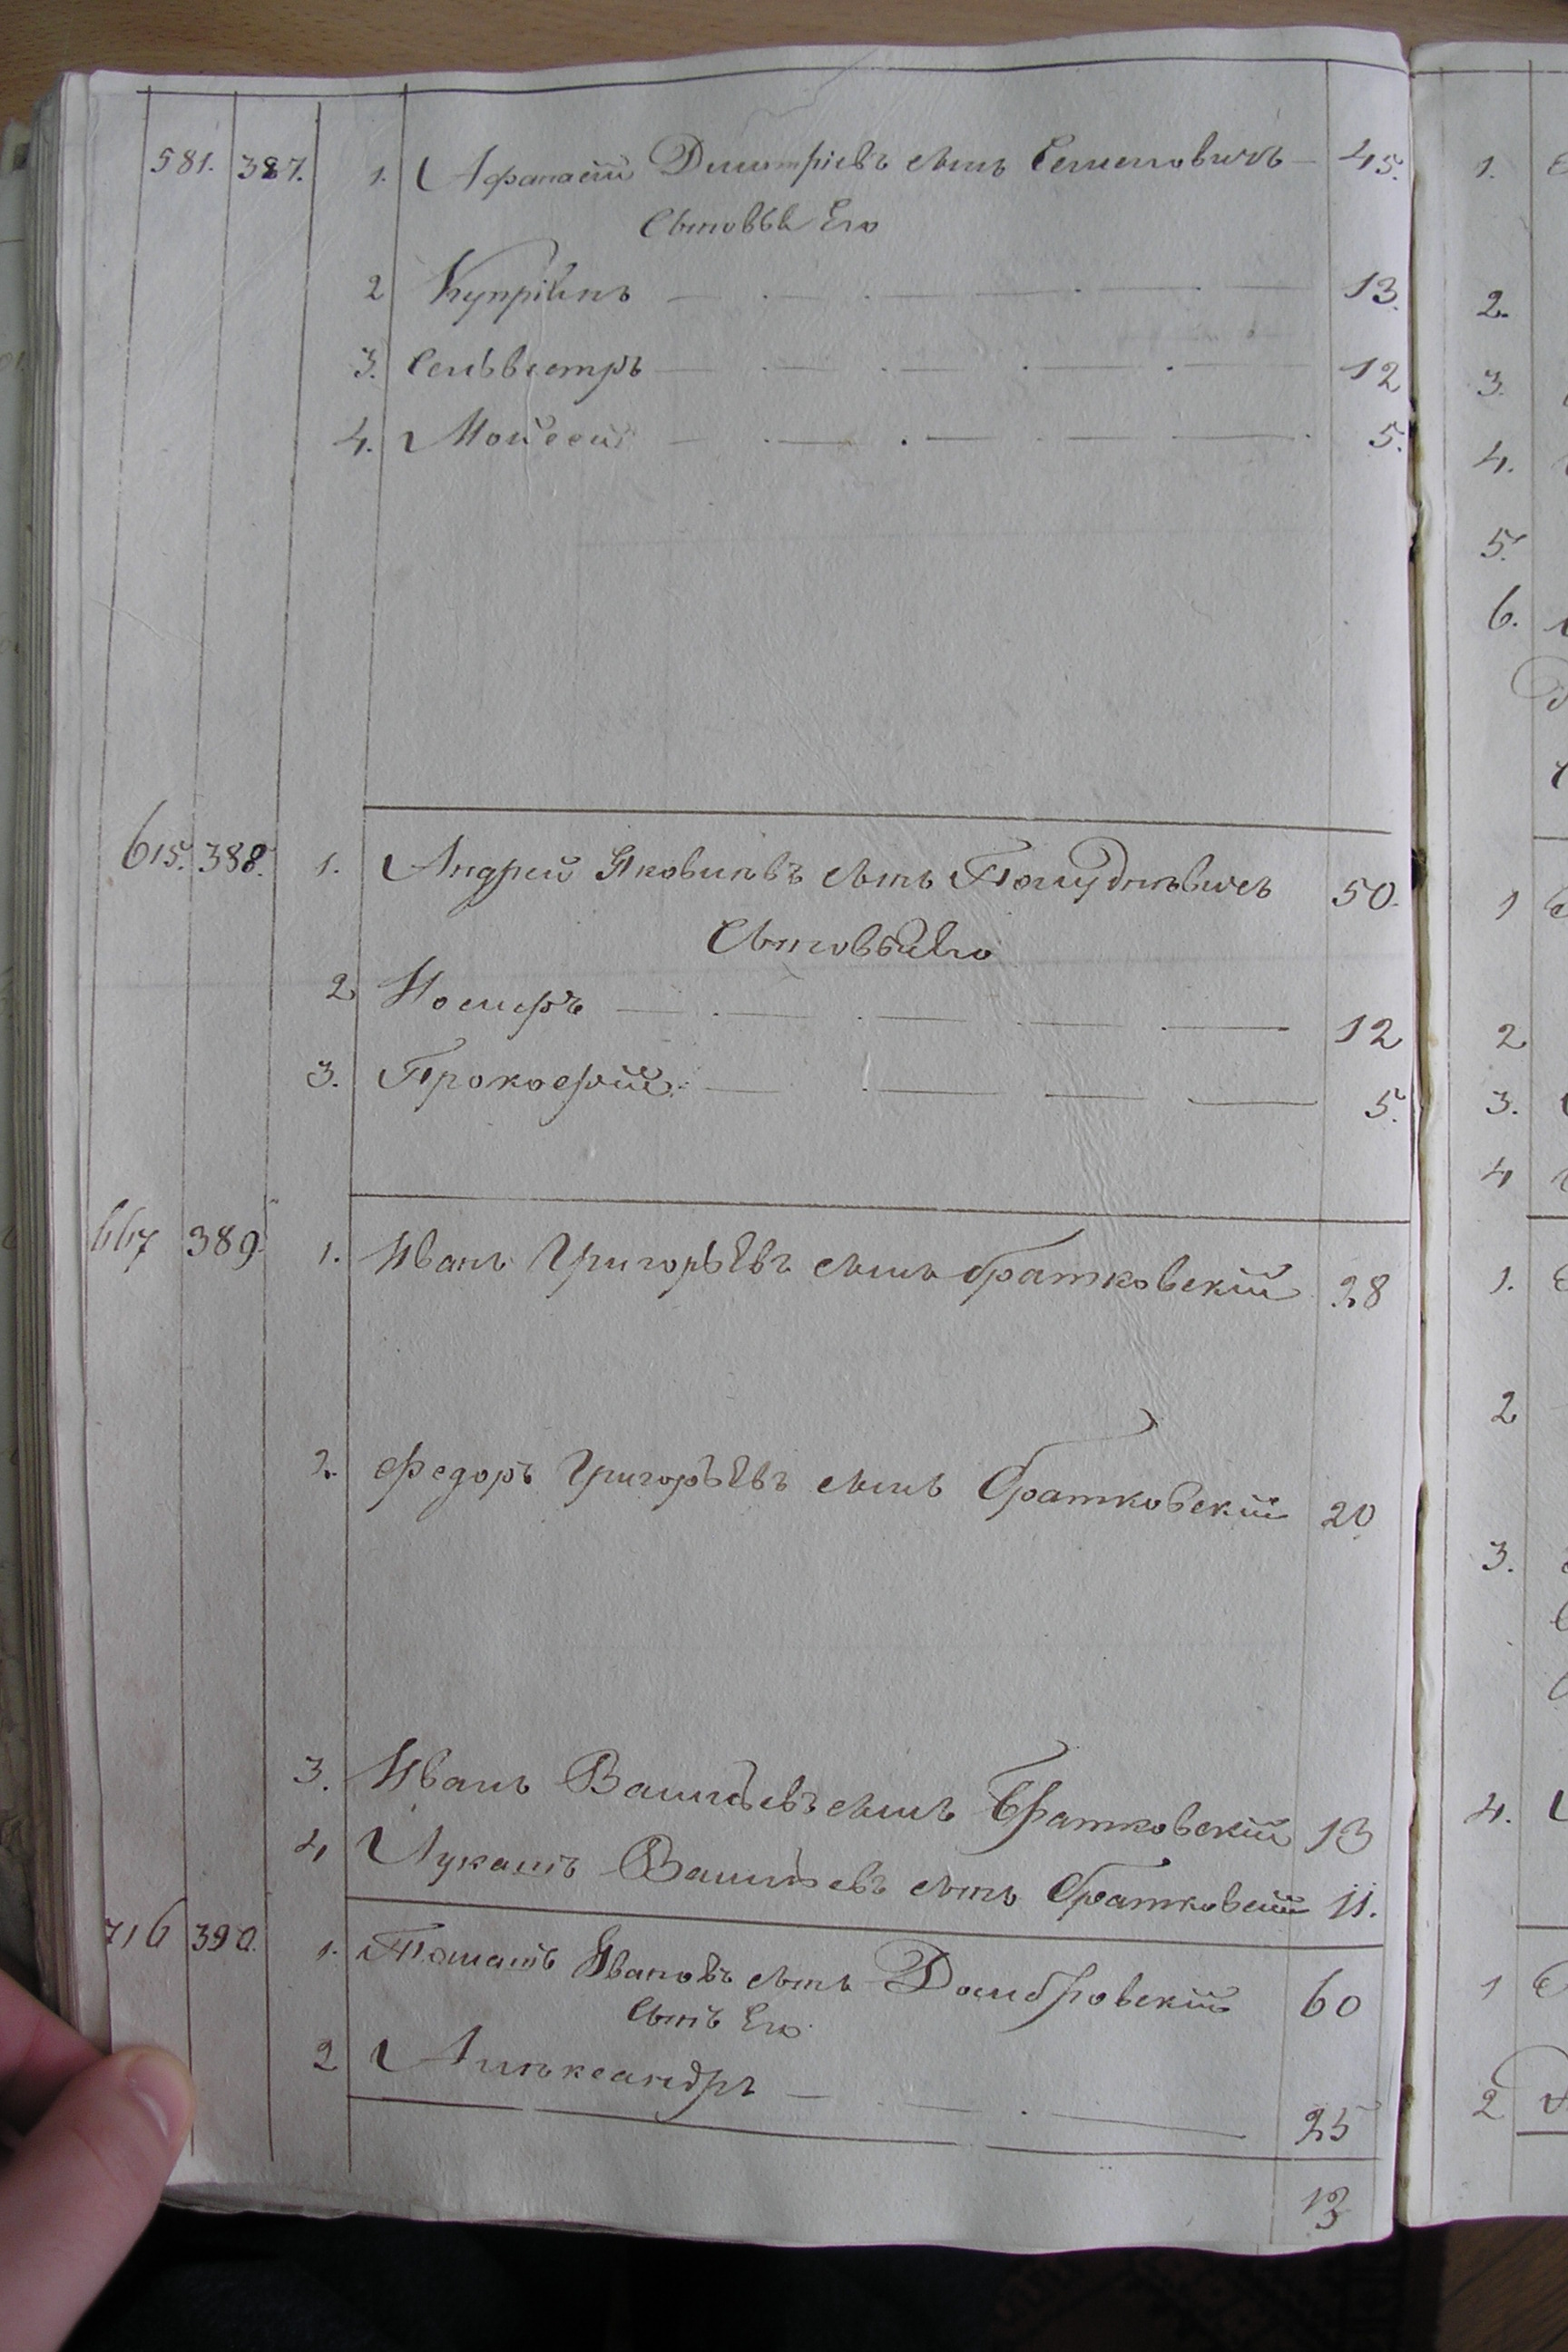 581. 387. 1. Афанасій Дмитріевъ сынъ Семеновичъ — 45.
Сыновья Его
2 Купріянъ 13.
3. Сельвестръ 12
4. Мойсей 5.
615. 388. 1. Андрей Яковлевъ сынъ 50.
Сыновья Его
2 Иосифъ 12
3. Прокофій 5.
667 389. 1. Иванъ Григорьевъ сынъ братковскій 28
2. Федоръ Григорьевъ сынъ Братковскій 20
3. Иванъ Васильевъ сынъ Братковскій 13
4, Лукашъ Васильевъ сынъ Братковскій 11.
716 390. 1. Томашъ Ивановъ сынъ Домбровскій 60
Сынъ Его
2 Аликсандръ 25
13
1.
2.
3.
4.
5.
6.
1
2
3.
4
1.
2
3.
4.
1
2